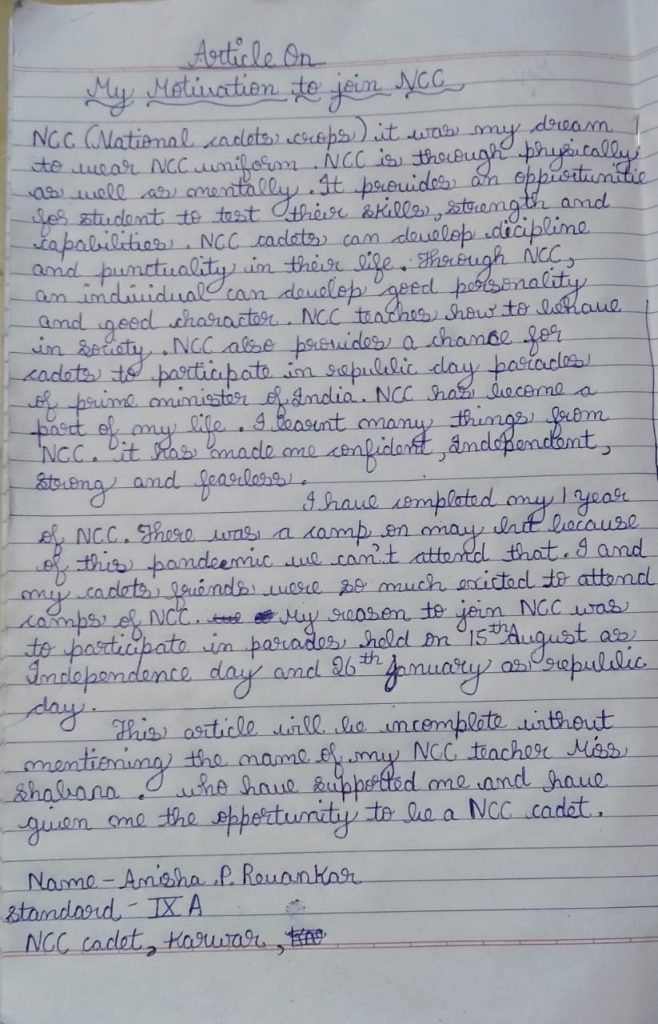 Article On
My Motivation to join NCC
NCC (National cadets crops) it was my dream
to wear NCC uniform. NCC is through physically
as well as mentally. It provides an oppurtunitie
for student to test their skills, strength and
capabilities. NCC cadets can develop dicipline
and punctuality in their life. Through NCC,
an individual can develop good personality
and good character. NCC teaches how to behave
in society. NCC also provides a chance for
cadets to participate in republic day parades
of prime minister of India. NCC has become a
part of my life. I learnt many things from
NCC. it has made me confident, Independent,
strong and fearless.
I have completed my 1 year
of NCC. There was a camp on may but because
of this pandeemic we can't attend that. I and
my cadets friends were so much exicted to attend
camps of NCC. My reason to join NCC was
to participate in parades held on 15th August as
Independence day and 26th January as republic
day.
This article will be incomplete without
mentioning the name of my NCC teacher Miss
Shabana. who have supported me and have
given me the opportunity to be a NCC cadet.
Name - Anisha .P. Revankar
Standard - IX A
NCC cadet, Karwar,